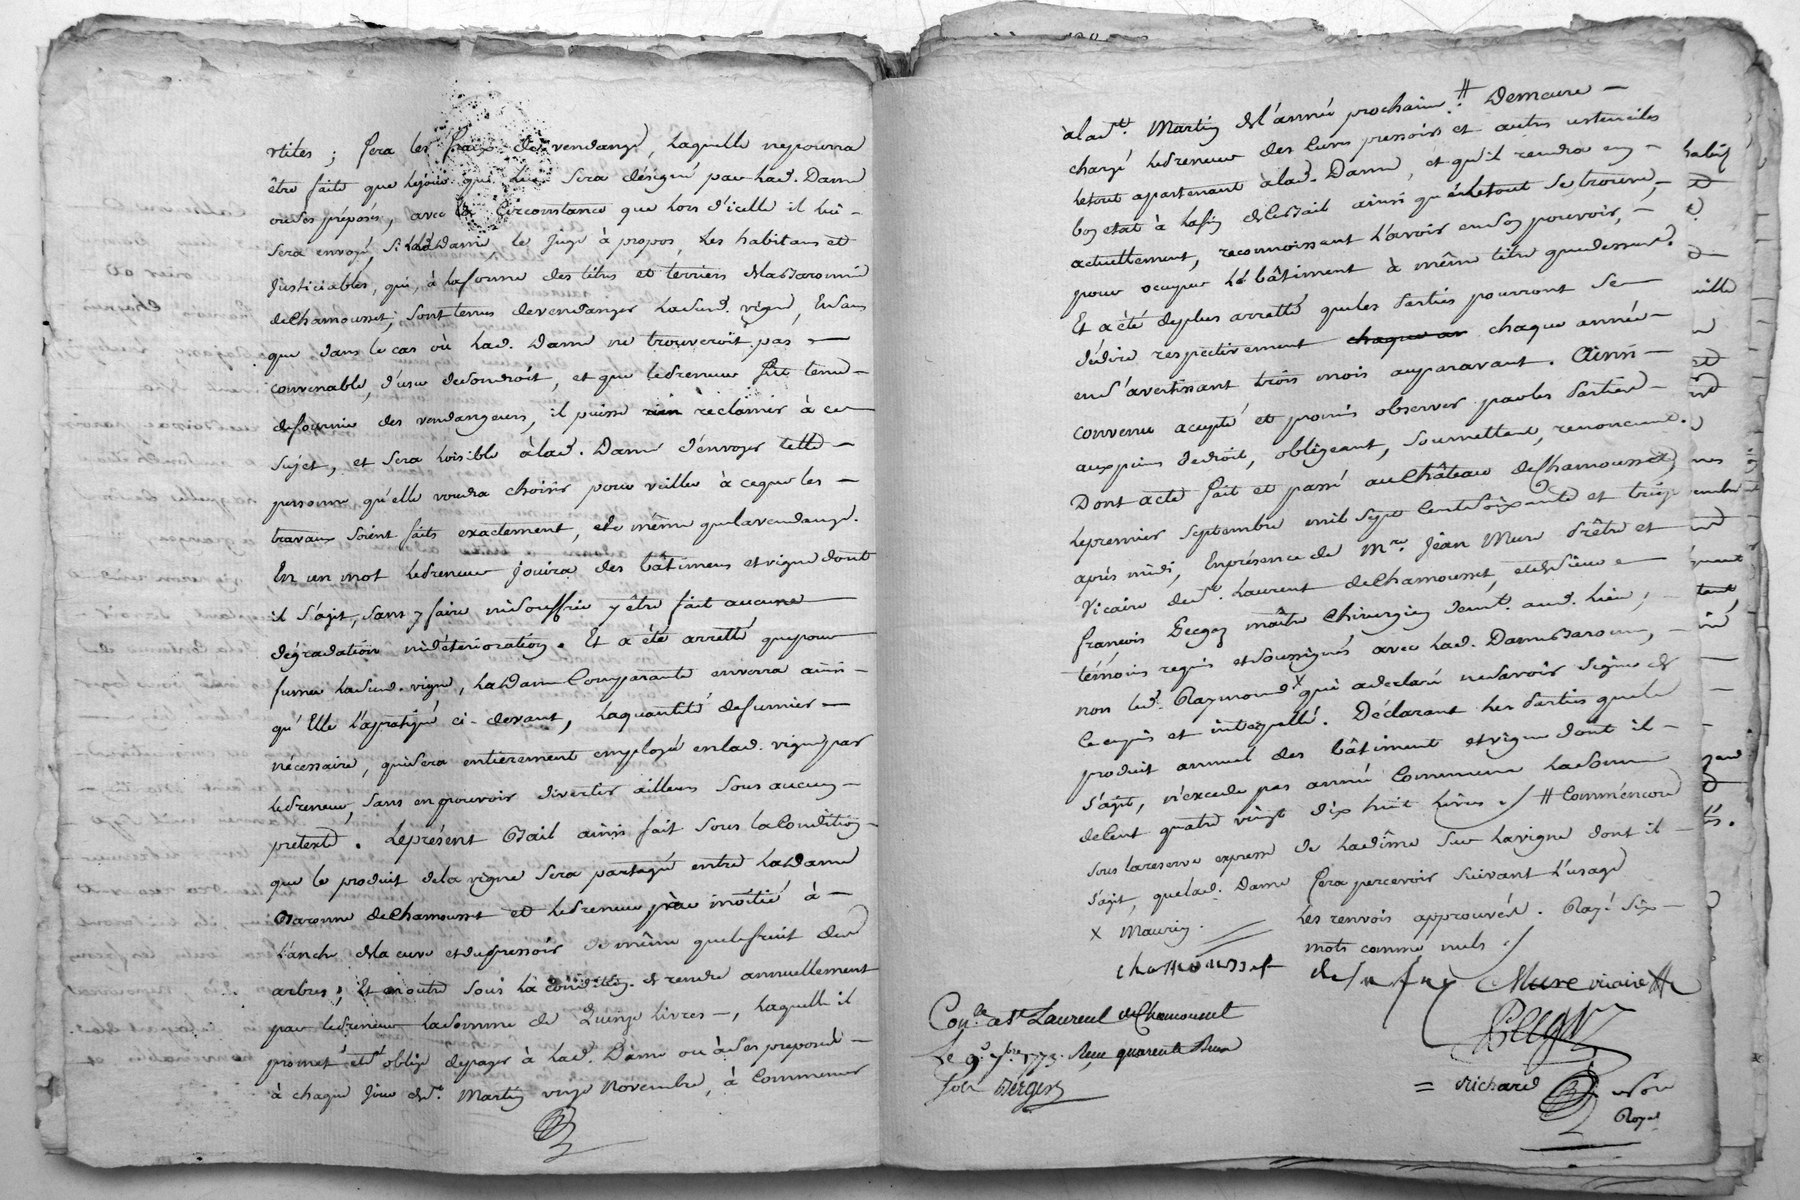 utiles ; fera les fraix de vendange, laquelle ne pourra
être faite que le jour qui lui sera désigné par lad. Dame
ou ses préposés, avec la Circonstance que hors d'icelle il lui
sera envoyé, si lad. Dame le juge à propos, les habitans et
justiciables, qui, à la forme des titres et terriers de la Baronnie
de Chamousset, sont tenus de vendanger lasusd. vigne, Ensans
que dans le cas où lad. Dame ne trouveroit pas
convenable, d'user de son droit, et que le preneur fut tenu
de fournir des vendangeurs, il puisse rien réclamer à ce
sujet, et sera loisible à lad. Dame d'envoyer telle
personne qu'elle voudra choisir pour veiller à ce que les
travaux soient faits exactement, et de même que la vendange.
En un mot le preneur jouira des bâtimens et vigne dont
il s'agit, sans y faire ni souffrir y être fait aucune
dégradation ni détérioration. Et a été arretté que pour
fumer lasusd. vigne, la Dame Comparante enverra ainsi
qu'Elle l'a pratiqué ci-devant, la quantité de fumier
nécessaire, qui sera entièrement employé en lad. vigne par
le preneur, sans en pouvoir divertir ailleurs sous aucun
pretexte. Le présent Bail ainsi fait sous la Condition
que le produit de la vigne sera partagé entre la Dame
Baronne de Chamousset et le preneur par moitié à
l'anche de la cuve et du pressoir de même que le fruit des
arbres ; Et en outre sous la condition de rendre annuellement
par le preneur la somme de Quinze livres, laquelle il
promet et s'oblige de payer à lad. Dame ou à ses preposés
à chaque jour de St. Martin onze Novembre, à Commencer
à la St. Martin de l'année prochaine # Demeure
chargé le preneur des cuves pressoirs et autres ustenciles
le tout apartenant à lad. Dame, et qu'il rendra en
bon état à la fin de ce Bail ainsi que le tout se trouve,
actuellement, reconnoissant l'avoir en son pouvoir,
pour ocuper le bâtiment à même titre que dessus.
Et a été de plus arretté que les Parties pourront se
dédire respectivement chaque an chaque année
en s'avertissant trois mois auparavant. Ainsi
convenu acepté et promis observer par les Parties
aux peines de droit, obligeant, soumettant, renonceant.
Dont acte fait et passé au Château de Chamousset
le premier Septembre mil sept Cent soixante et treize
après midi, En présence de Mre. Jean Mure Prêtre et
Vicaire de St. Laurent de Chamousset, et de Sieur
françois maître Chirurgien demt. aud. Lieu,
témoins requis et soussignés avec lad. Dame Baronne,
non led. Raymond x qui a déclaré ne savoir signer de
ce enquis et interpellé. Déclarant les Parties que le
produit annuel des bâtiment et vigne dont il
s'agit, n'excede pas année Commune la somme
de Cent quatre vingt dix huit livres ./ # Comm'encore
sous la reserve expresse de la dîme sur la vigne dont il
s'agit, que lad. Dame fera percevoir suivant l'usage
x Maurin. les renvois approuvés. Rayé six
mots comme nuls ./
chamousset Mure vicaire
Conlé. à St Laurent de Chamousset
Le 9e. 7bre 1773. Reçu quarante Deux
Sols
= Richard
Royal